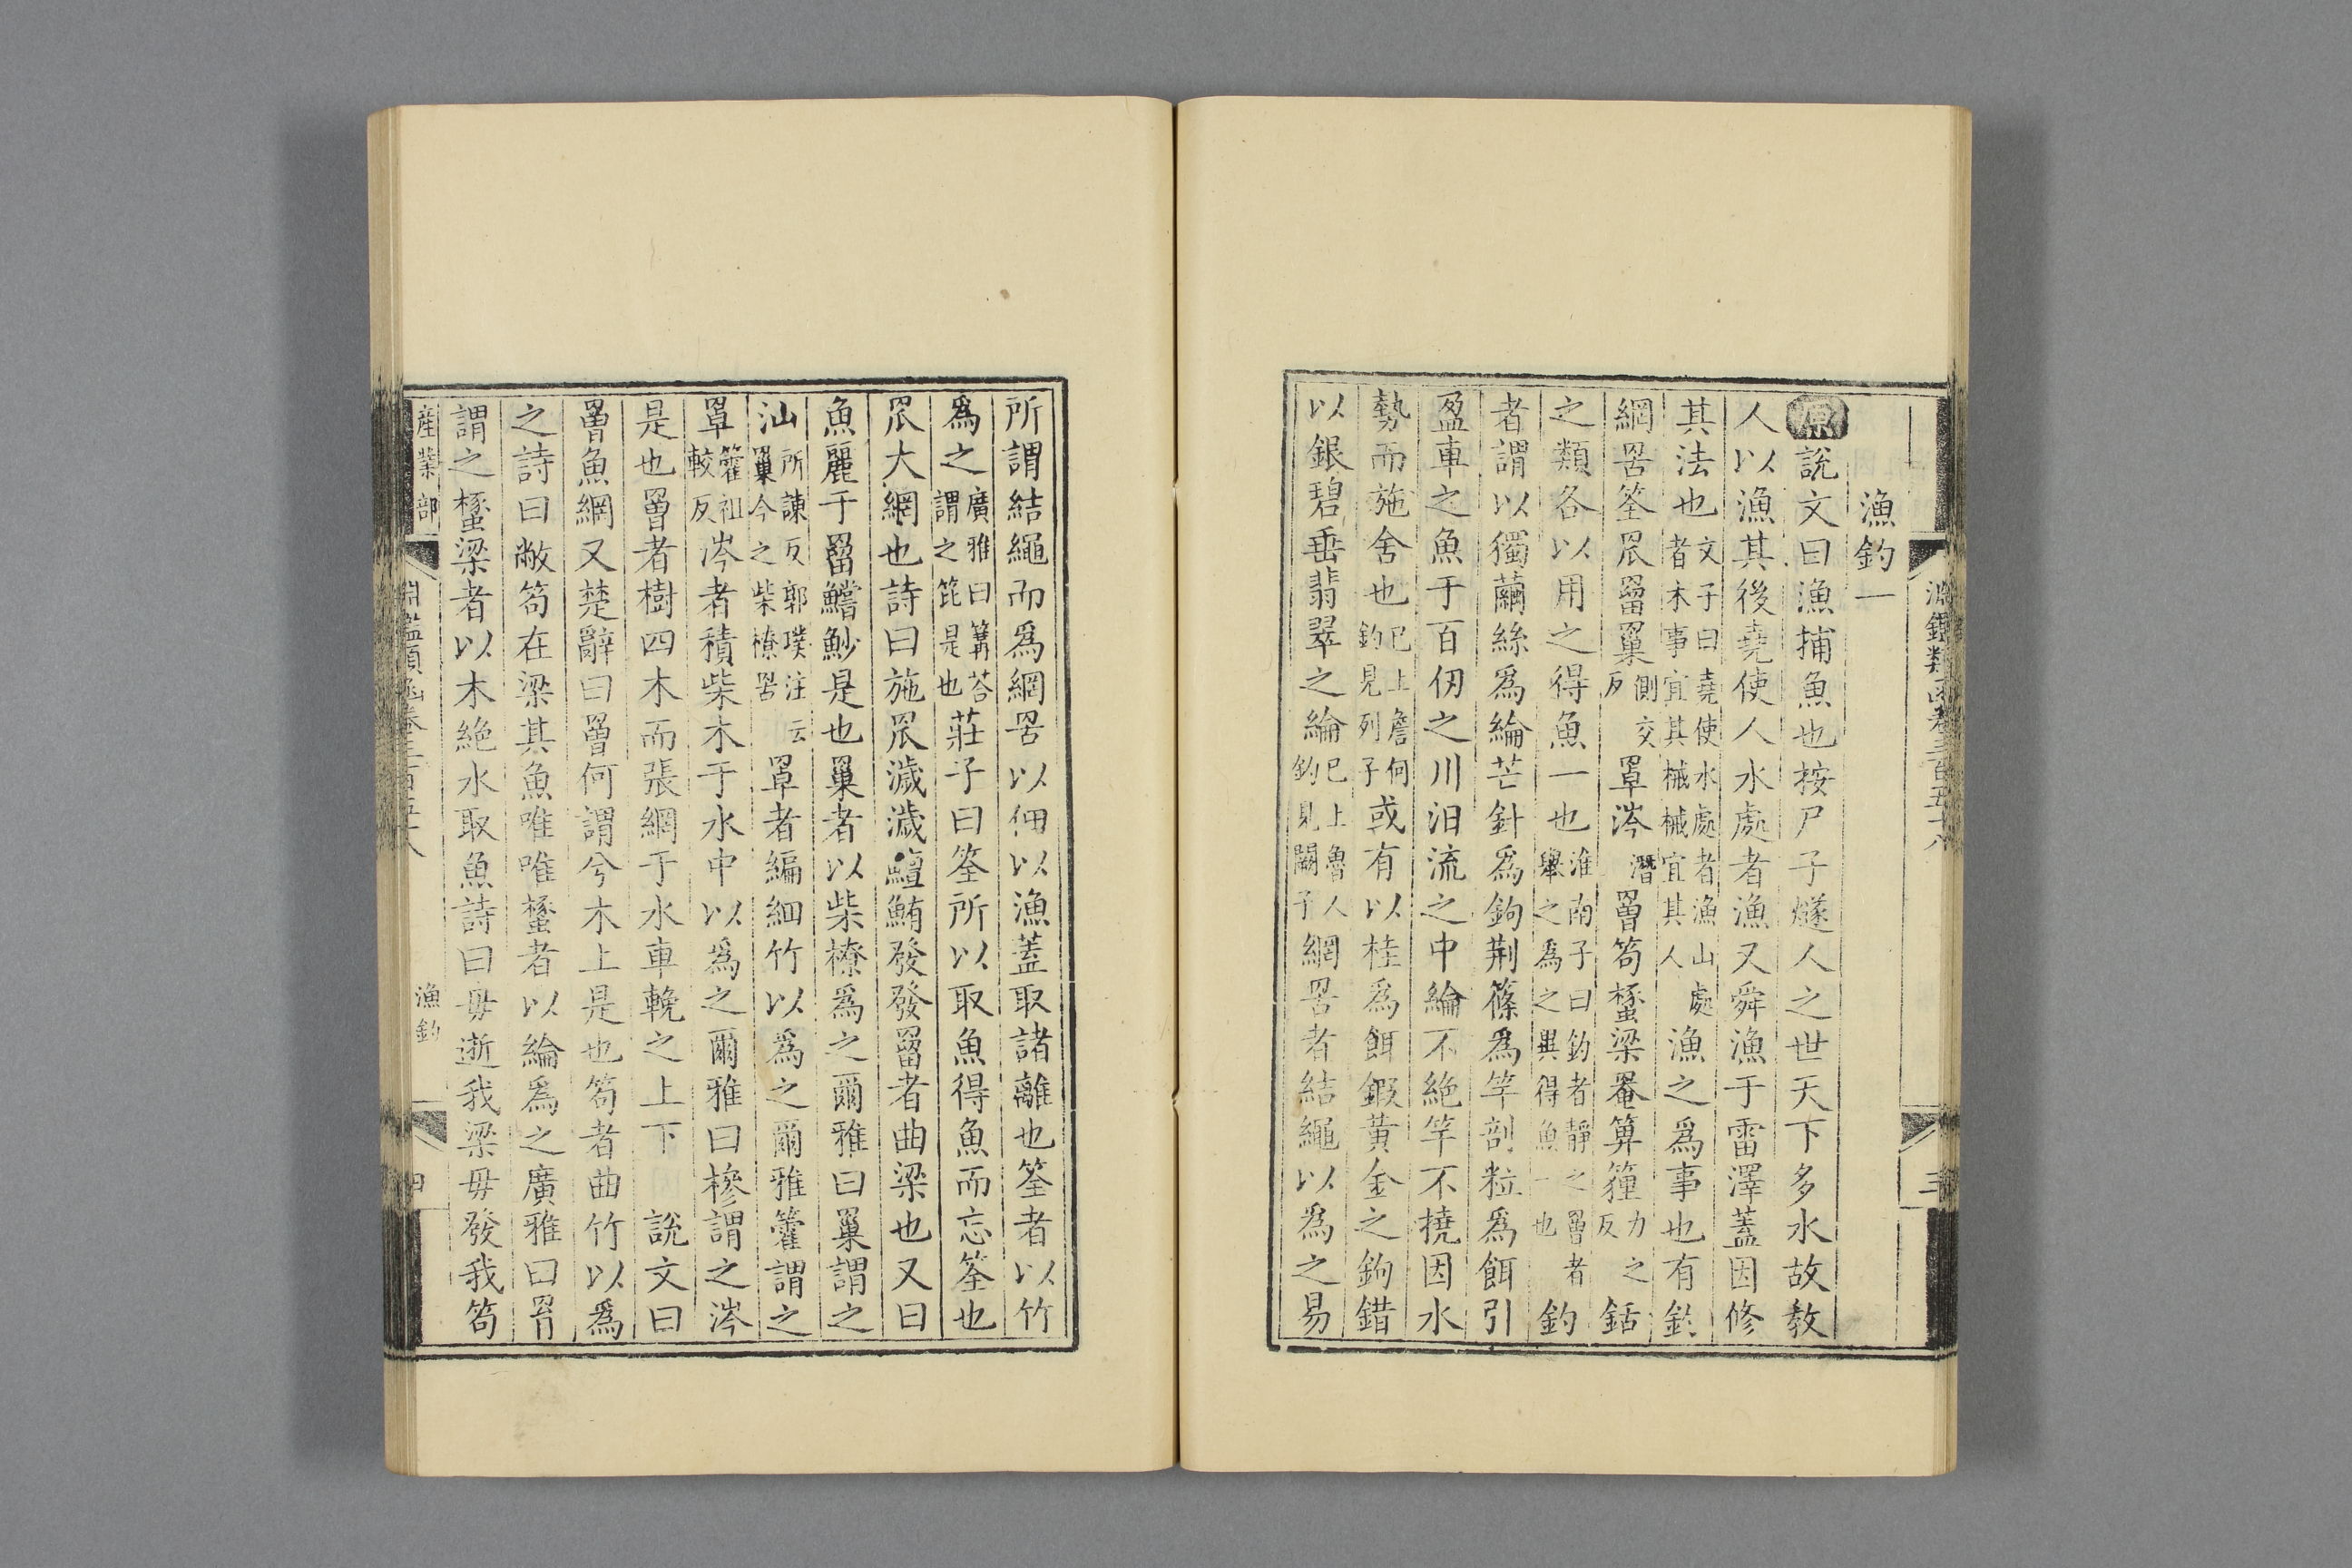 漁釣一
原說文曰漁捕魚也按尸子燧人之世天下多水故教
人以漁其後堯使人水處者漁又舜漁于雷澤蓋因修
其法也文子曰堯使水處者漁山處者木事宜其械械宜其人漁之為事也有釣
網罟筌罛罶罺側交反罩涔潛罾笱𥰡梁罨箅䉶力之反銛
之類各以用之得魚一也淮南子曰釣者靜之罾者舉之為之異得魚一也釣
者謂以獨繭絲爲綸芒針爲鉤荆篠爲竿剖粒爲餌引
盈車之魚于百仞之川汨流之中綸不絶竿不撓因水
勢而施舍也巳上詹何釣見列子或有以桂爲餌鍜黃金之鉤錯
以銀碧垂翡翠之綸巳上魯人釣見闕子網罟者結繩以爲之易
所謂結繩而爲網罟以佃以漁蓋取諸離也筌者以竹
爲之廣雅曰篝荅謂之笓是也莊子曰筌所以取魚得魚而忘筌也
罛大網也詩曰施罛濊濊鱣鮪發發罶者曲梁也又曰
魚麗于罶鱨魦是也罺者以柴橑爲之爾雅曰罺謂之
汕所諫反郭璞注云罺今之柴橑罟罩者編細竹以爲之爾雅籗謂之
罩籗祖較反涔者積柴木于水中以爲之爾雅曰槮謂之涔
是也罾者樹四木而張網于水車輓之上下說文曰
罾魚網又楚辭曰罾何謂兮木上是也笱者曲竹以爲
之詩曰敝笱在梁其魚唯唯𥰡者以綸爲之廣雅曰罥
謂之𥰡梁者以木絶水取魚詩曰毋逝我梁毋發我笱
淵鑑類函卷三百五十八
三
産業部
淵鑑類函卷三百五十八
漁釣
四